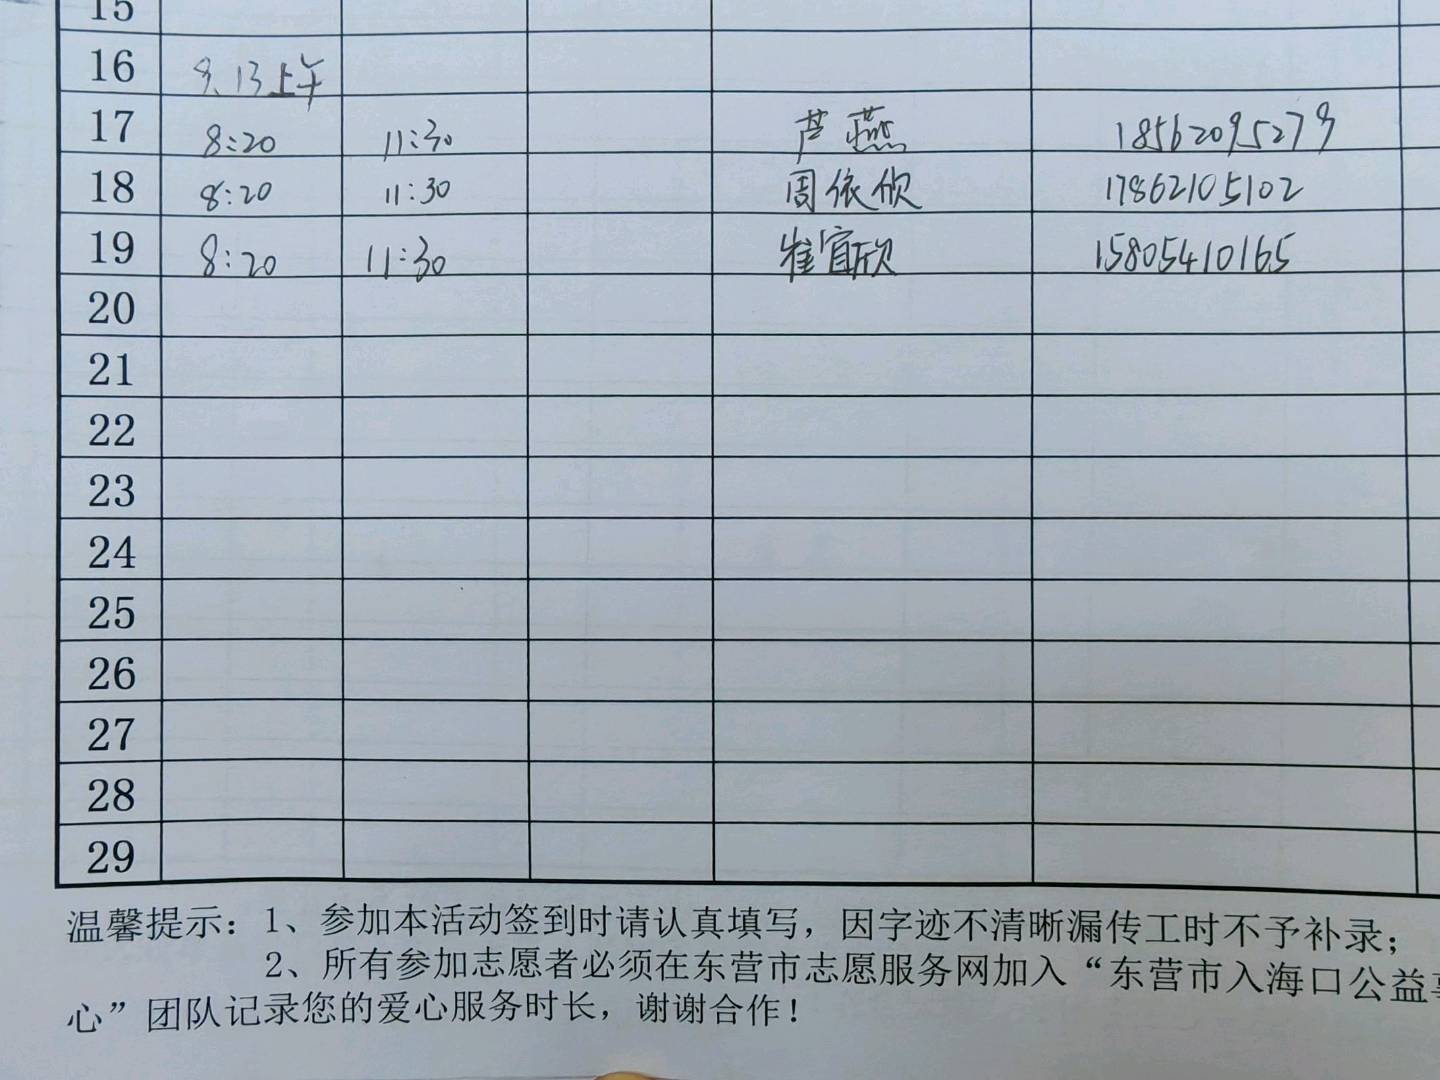 15
16 8.13上午
17 8:20 11:30 芦燕 18562095279
18 8:20 11:30 周依欣 17862105102
19 8:20 11:30 崔宜欣 15805410165
20
21
22
23
24
25
26
27
28
29
温馨提示：1、参加本活动签到时请认真填写，因字迹不清晰漏传工时不予补录；
2、所有参加志愿者必须在东营市志愿服务网加入“东营市入海口公益
心”团队记录您的爱心服务时长，谢谢合作！